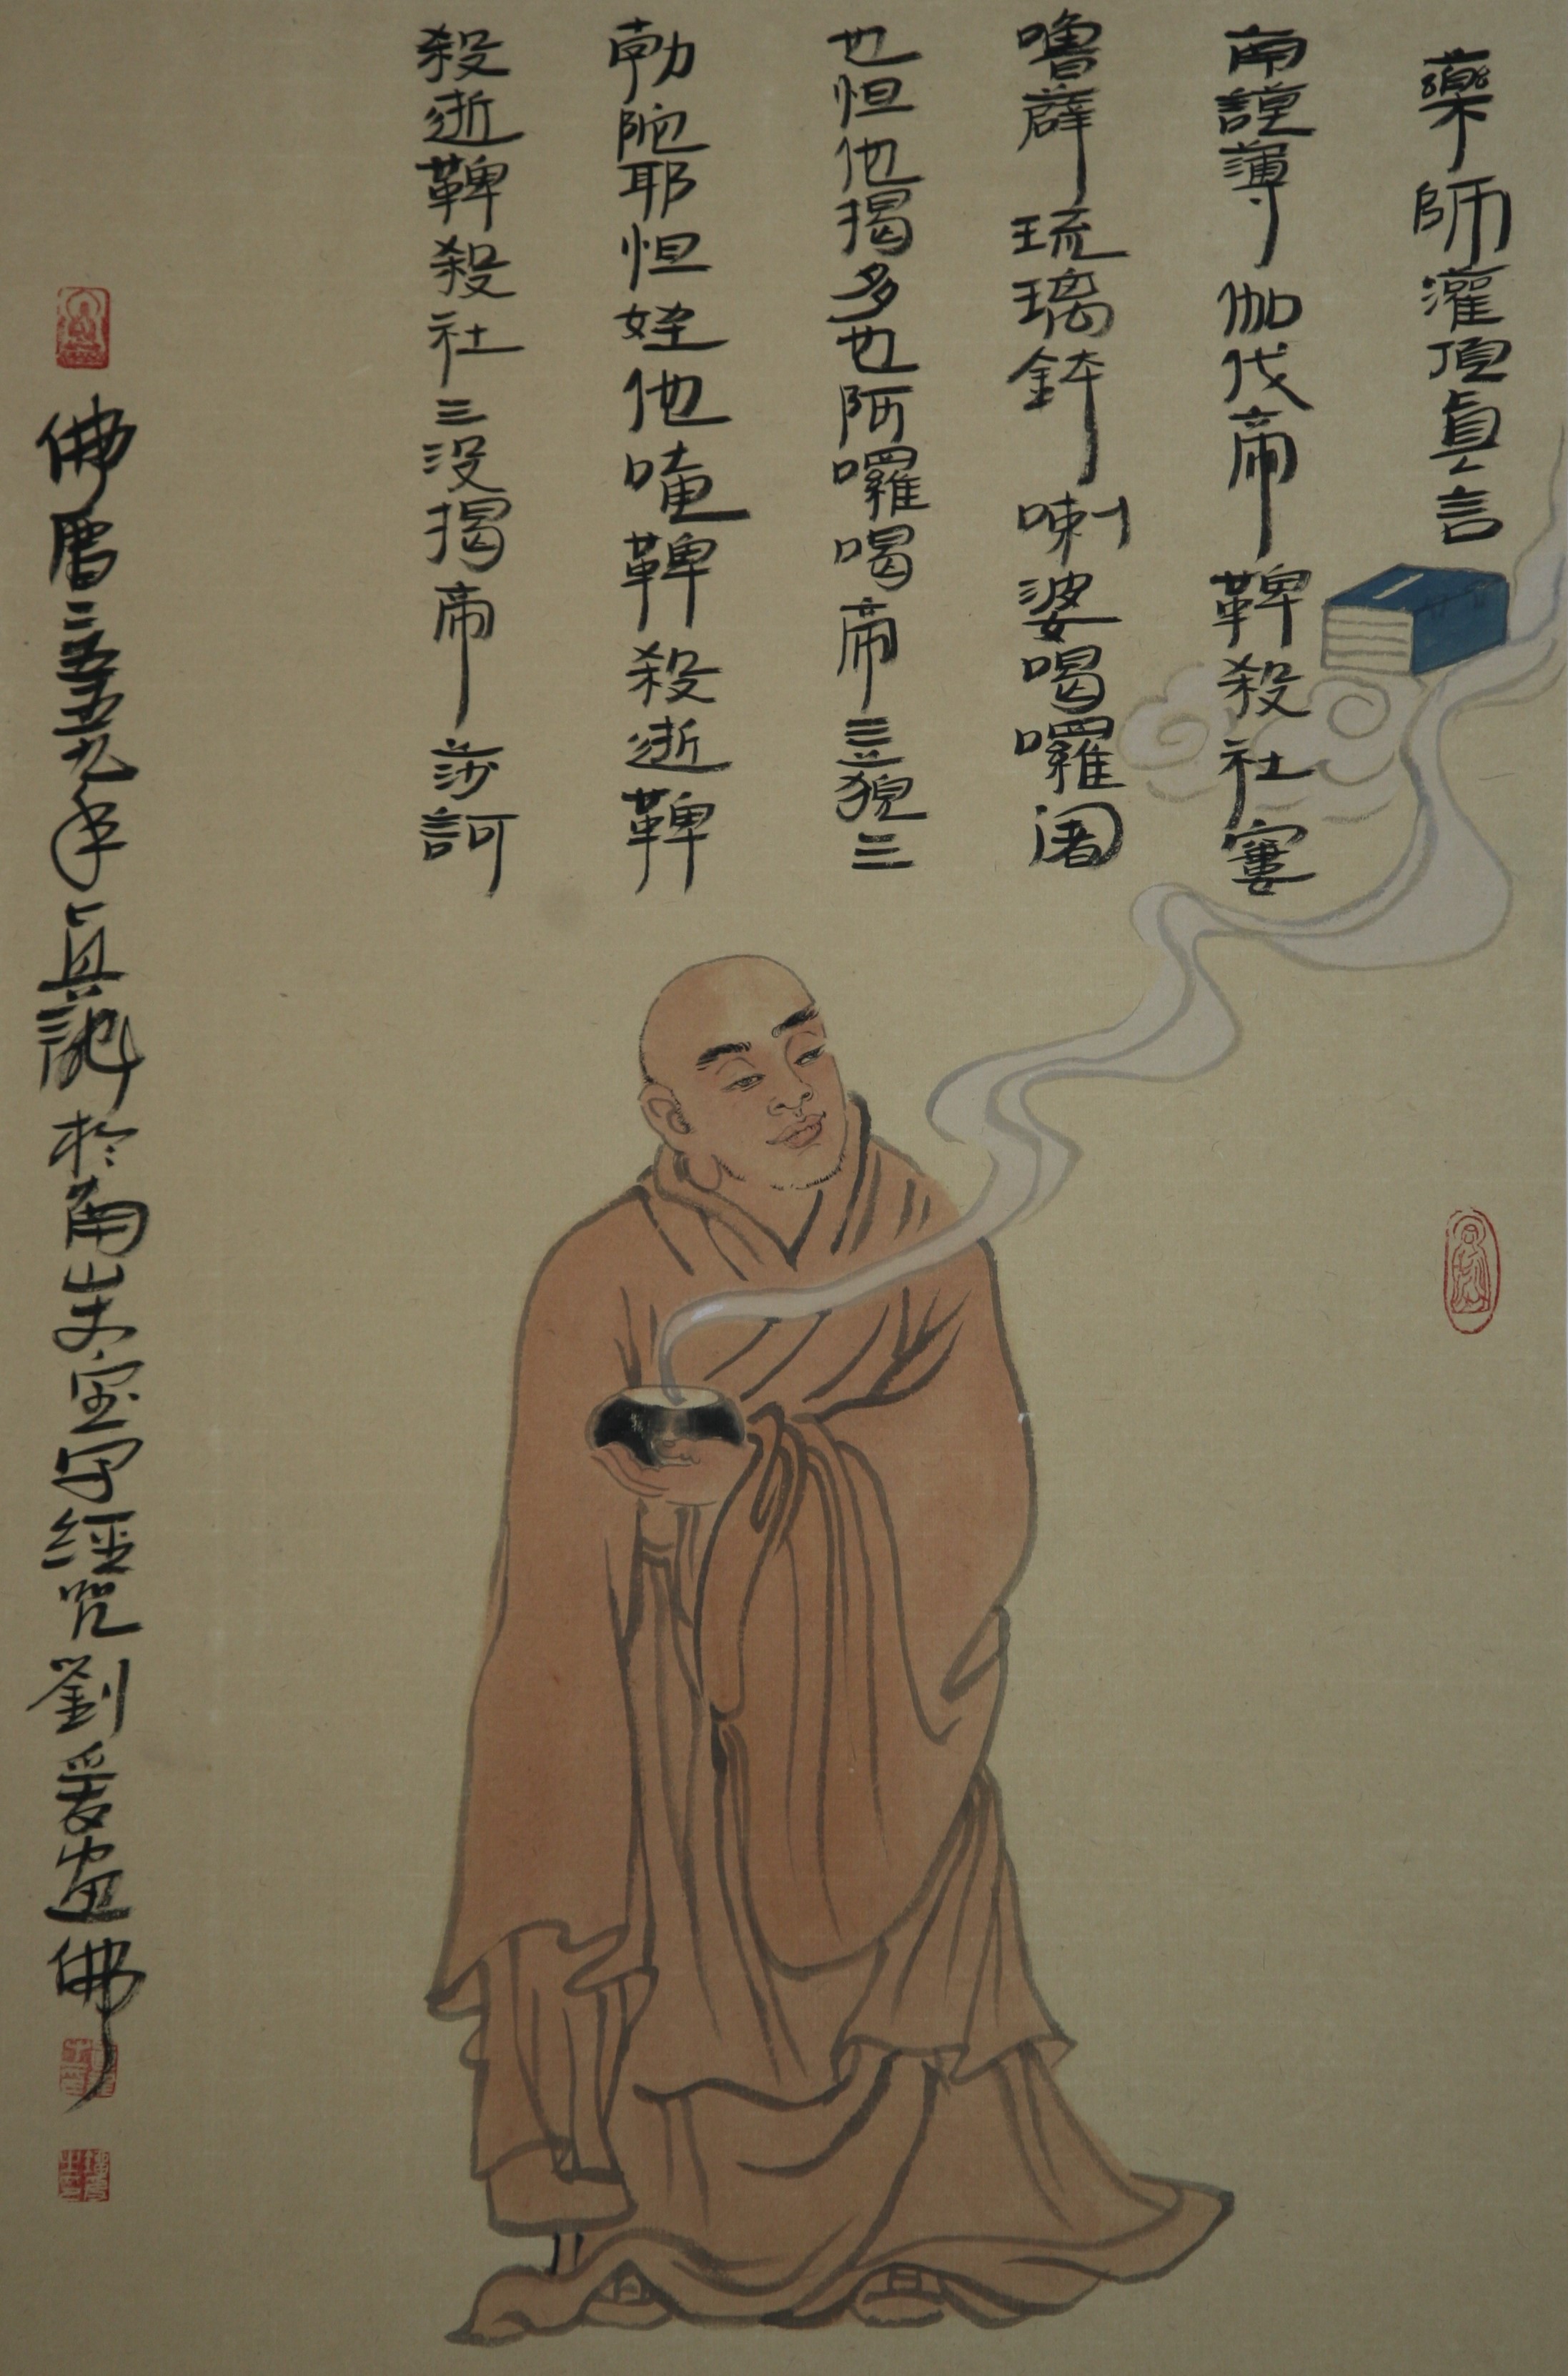 藥師灌頂真言
南謨薄伽伐帝鞞殺社寠
嚕薜琉璃鉢喇婆喝囉闍
也怛他揭多也阿囉喝帝三藐三
勃陀耶怛姪他唵鞞殺逝鞞
殺逝鞞殺社三没揭帝莎訶
佛曆二五五九年真詵於南山文室字經咒劉爰畫佛